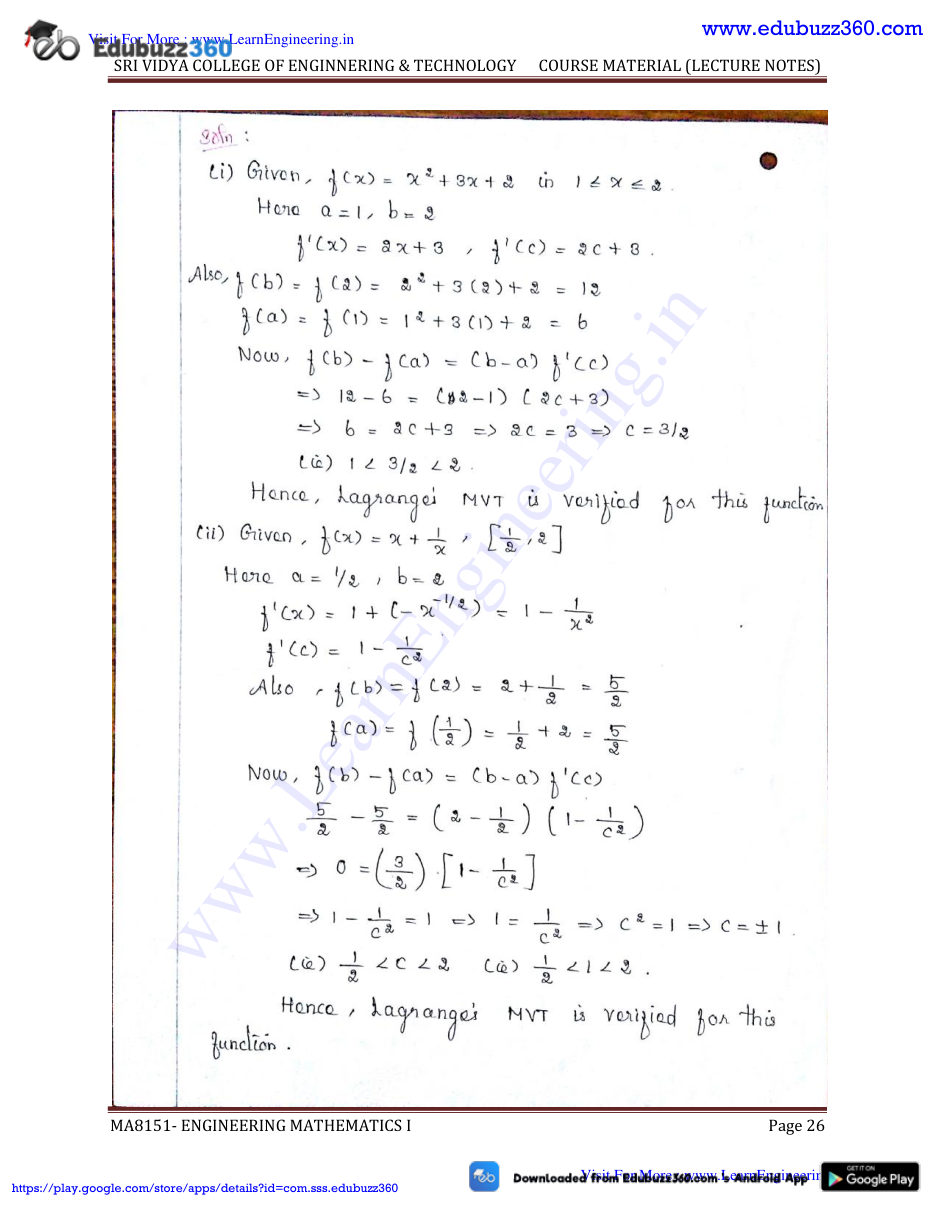 www.edubuzz360.com
Visit For More : www.LearnEngineering.in
Edubuzz360
SRI VIDYA COLLEGE OF ENGINNERING & TECHNOLOGY COURSE MATERIAL (LECTURE NOTES)
Soln :
(i) Given, f(x) = x² + 3x + 2 in 1 ≤ x ≤ 2.
Here a = 1, b = 2
f'(x) = 2x + 3 , f'(c) = 2c + 3.
Also, f(b) = f(2) = 2² + 3(2) + 2 = 12
f(a) = f(1) = 1² + 3(1) + 2 = 6
Now, f(b) - f(a) = (b-a) f'(c)
=> 12 - 6 = (2-1) (2c+3)
=> 6 = 2c + 3 => 2c = 3 => c = 3/2
(ie) 1 < 3/2 < 2.
Hence, Lagrange's MVT is verified for this function
(ii) Given, f(x) = x + 1/x , [1/2, 2]
Here a = 1/2 , b = 2
f'(x) = 1 + (-x^(-1/2)) = 1 - 1/x²
f'(c) = 1 - 1/c²
Also , f(b) = f(2) = 2 + 1/2 = 5/2
f(a) = f(1/2) = 1/2 + 2 = 5/2
Now, f(b) - f(a) = (b-a) f'(c)
5/2 - 5/2 = (2 - 1/2) (1 - 1/c²)
=> 0 = (3/2) . [1 - 1/c²]
=> 1 - 1/c² = 1 => 1 = 1/c² => c² = 1 => c = ±1.
(ie) 1/2 < c < 2 (ie) 1/2 < 1 < 2.
Hence, Lagrange's MVT is verified for this
function.
www.LearnEngineering.in
MA8151- ENGINEERING MATHEMATICS I Page 26
https://play.google.com/store/apps/details?id=com.sss.edubuzz360
Downloaded from EduBuzz360.com 's Android App
Visit For More : www.LearnEngineerin
GET IT ON
Google Play